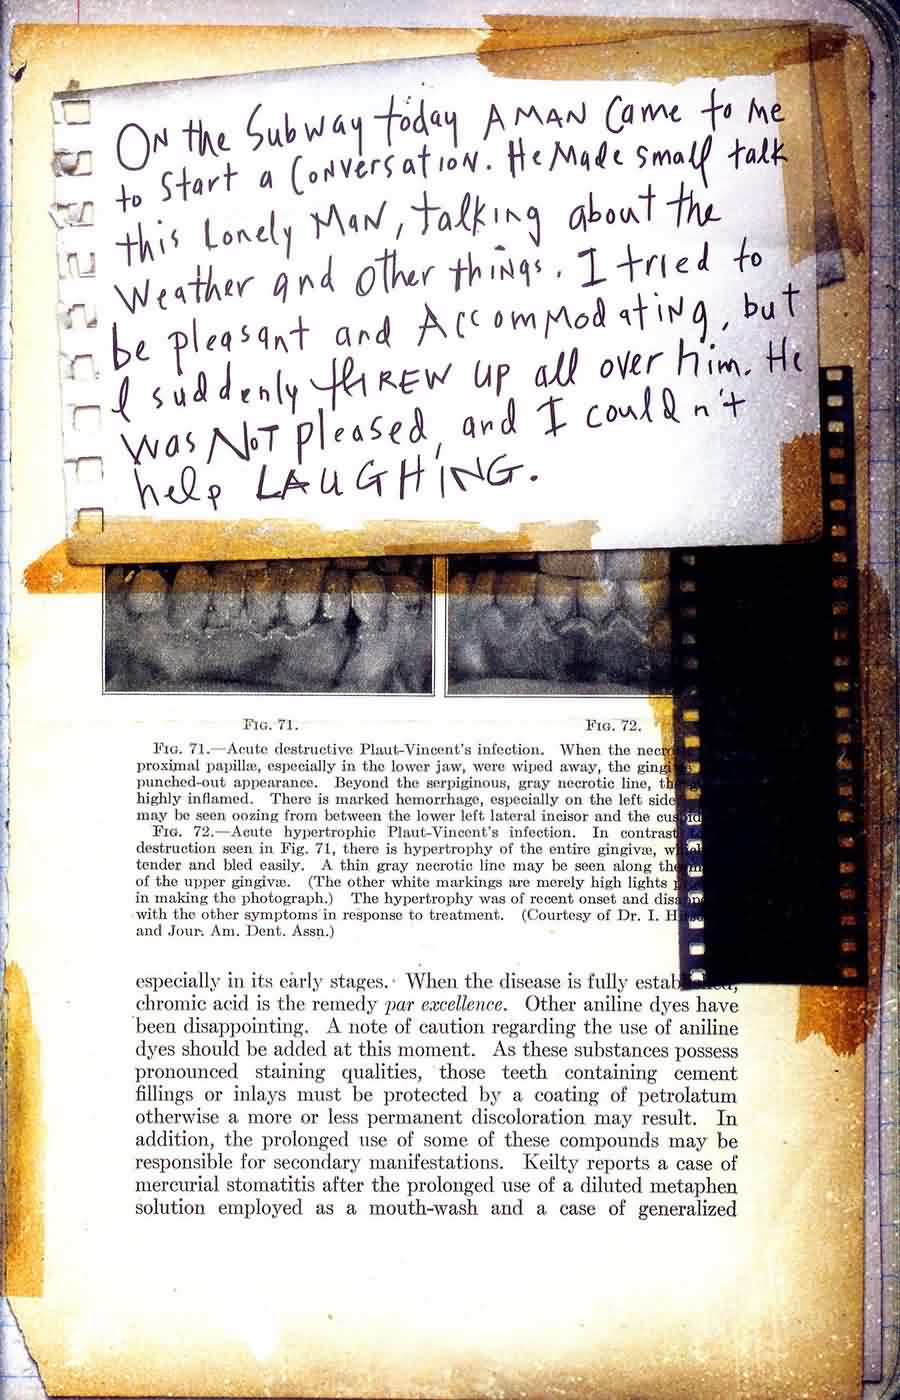 ON the Subway today A MAN Came to me
to Start a Conversation. He Made small talk
this Lonely MaN, talking about the
Weather and other things. I tried to
be pleasant and Accommodating, but
I suddenly thREW up all over him. He
was NoT pleased, and I couldn't
help LAUGHING.
FIG. 71. FIG. 72.
FIG. 71.—Acute destructive Plaut-Vincent's infection. When the
proximal papillæ, especially in the lower jaw, were wiped away, the
punched-out appearance. Beyond the serpiginous, gray necrotic line,
highly inflamed. There is marked hemorrhage, especially on the left side
may be seen oozing from between the lower left lateral incisor and the
FIG. 72.—Acute hypertrophic Plaut-Vincent's infection. In contrast
destruction seen in Fig. 71, there is hypertrophy of the entire gingivæ,
tender and bled easily. A thin gray necrotic line may be seen along the
of the upper gingivæ. (The other white markings are merely high lights
in making the photograph.) The hypertrophy was of recent onset and
with the other symptoms in response to treatment. (Courtesy of Dr. I.
and Jour. Am. Dent. Assn.)
especially in its early stages. When the disease is fully established,
chromic acid is the remedy par excellence. Other aniline dyes have
been disappointing. A note of caution regarding the use of aniline
dyes should be added at this moment. As these substances possess
pronounced staining qualities, those teeth containing cement
fillings or inlays must be protected by a coating of petrolatum
otherwise a more or less permanent discoloration may result. In
addition, the prolonged use of some of these compounds may be
responsible for secondary manifestations. Keilty reports a case of
mercurial stomatitis after the prolonged use of a diluted metaphen
solution employed as a mouth-wash and a case of generalized